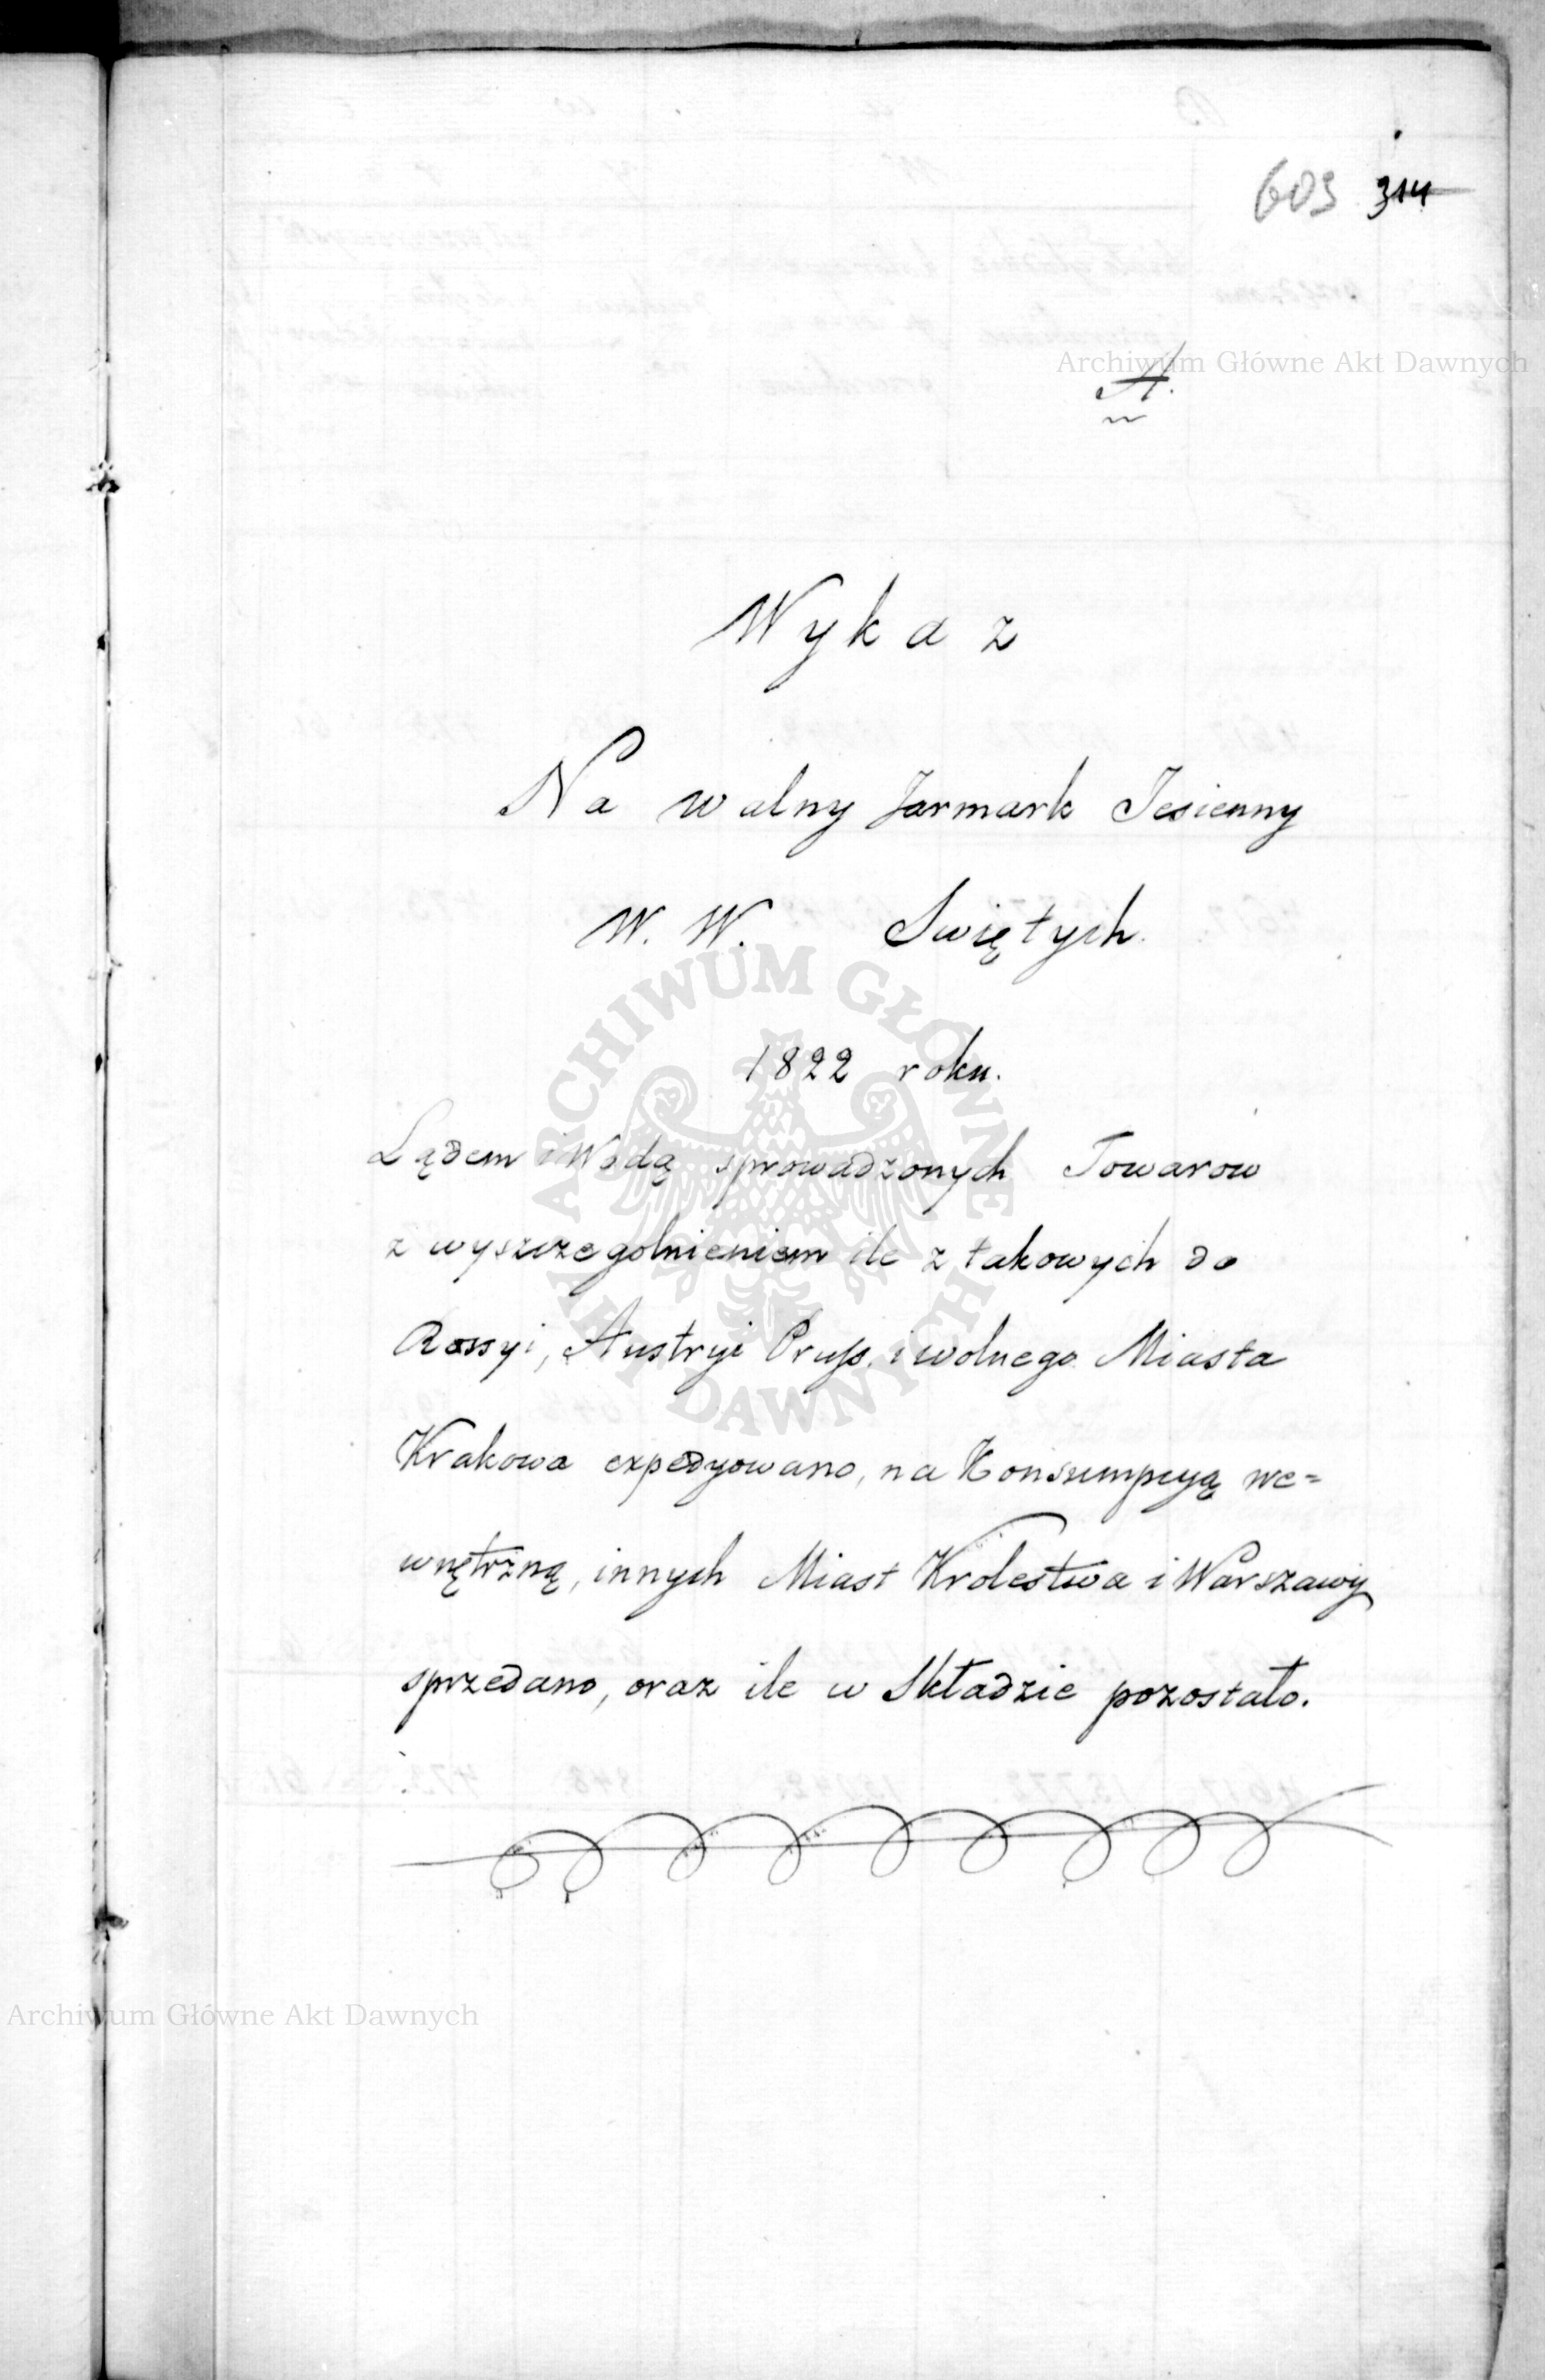 609 314
Archiwum Główne Akt Dawnych
A.
Wykaz
Na walny Jarmark Jesienny
W. W. Swiętych.
1822 roku.
Lądem i Wodą sprowadzonych Towarow
z wyszczegolnieniem ile z takowych do
Rossyi, Austryi Pruss. i wolnego Miasta
Krakowa expedyowano, na Konsumpcyą we=
wnętrzną, innych Miast Krolestwa i Warszawy
sprzedano, oraz ile w Składzie pozostało.
ARCHIWUM GŁÓWNE
AKT DAWNYCH
Archiwum Główne Akt Dawnych